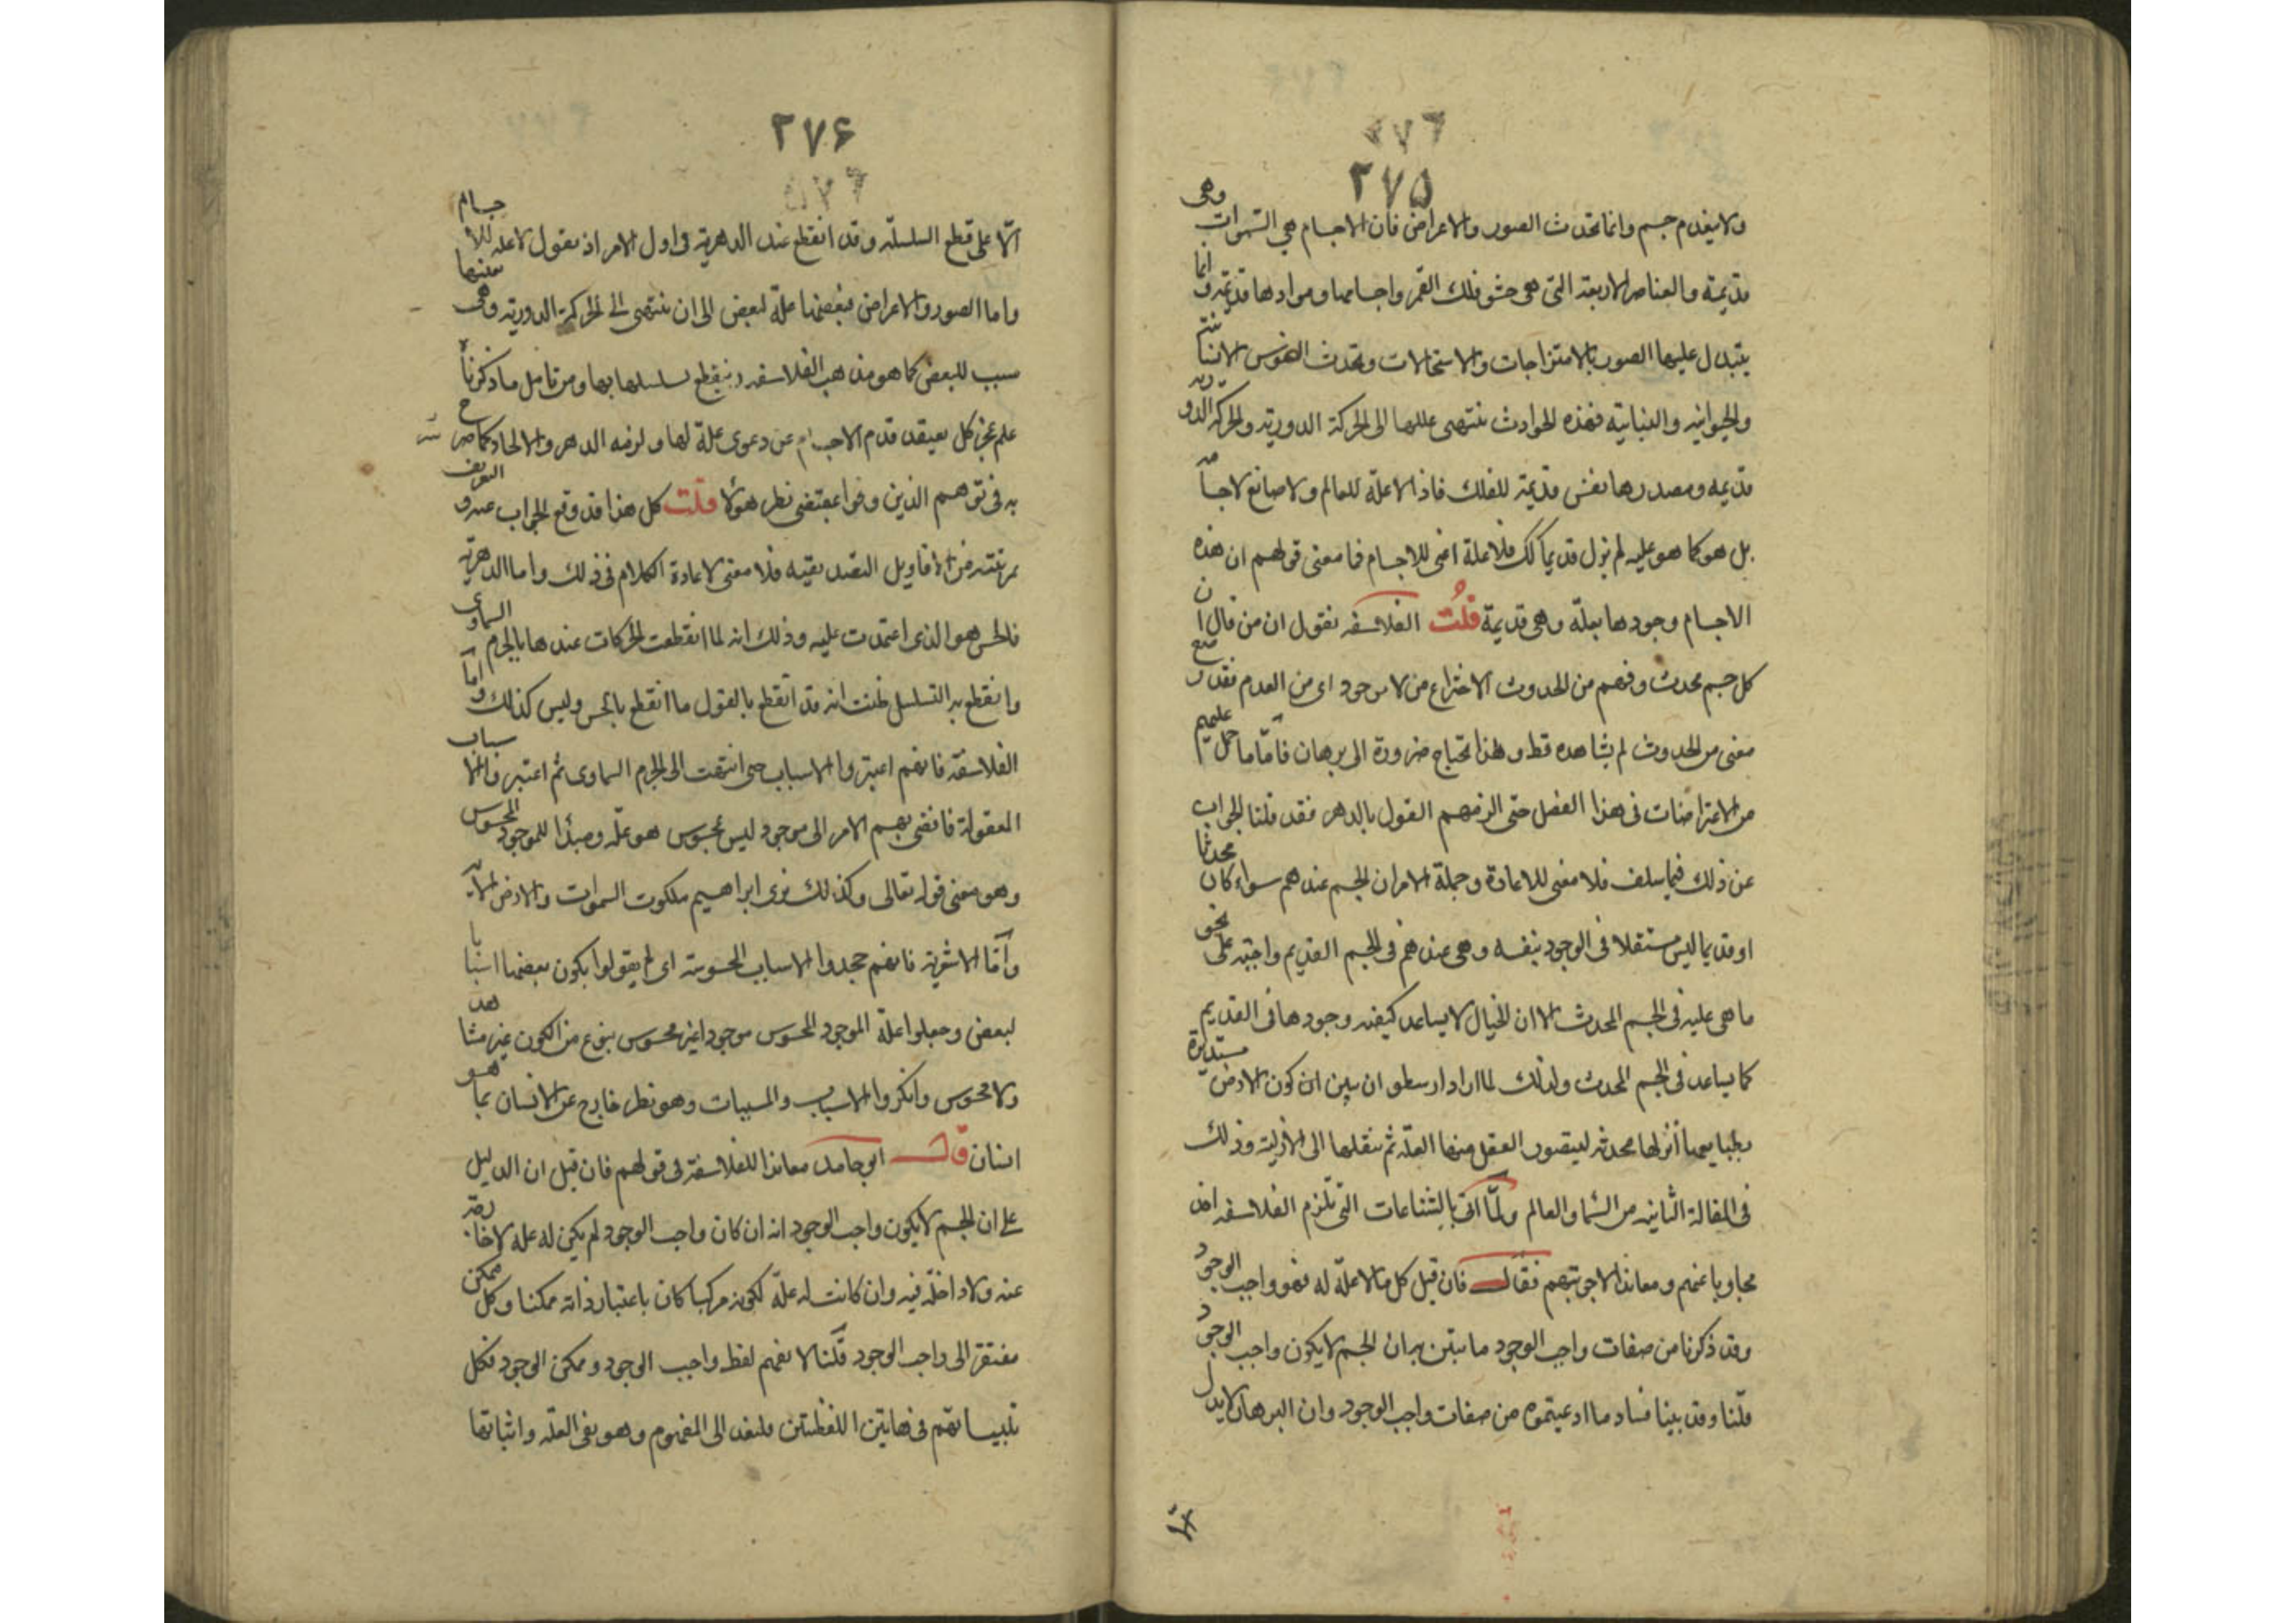 ٢٧٦
٢٧۵
ولا ينعدم جسم وانما تحدث الصور والاعراض فان الاجسام هي السموات وهى
قديمة والعناصر الاربعة التى هى حشو فلك القمر واجسامها وموادها قديمة وانما
يتبدل عليها الصور بالامتزاجات والاستحالات وتحدث النفوس الانسانية
والحيوانيه والنباتيه فهذه الحوادث تنتهى عللها الى الحركة الدورية والحركة الدورية
قديمه ومصدرها نفس قديمة للفلك فاذا لاعلة للعالم ولا صانع لاجسامه
بل هو كما هو عليه لم يزل قديما كك فلا علة اعنى للاجسام فما معنى قولهم ان هذه
الاجسام وجودها بعلة وهى قديمة قلتُ الفلاسفه تقول ان من قال ان
كل جسم محدث وفهم من الحدوث الاختراع من لا موجود اى من العدم فقد وضع
معنى من الحدوث لم يشاهده قط وهذا يحتاج ضرورة الى برهان فاما ما حمل عليهم
من الاعتراضات فى هذا الفصل حتى الزمهم القول بالدهر فقد قلنا الجواب
عن ذلك فيما سلف فلا معنى للاعادة وجملة الامر ان الجسم عندهم سواء كان محدثا
او قديما ليس مستقلا فى الوجود بنفسه وهى عندهم فى الجسم القديم واجبة على نحو
ما هى عليه فى الجسم المحدث الا ان الخيال لا يساعد كيفيه وجودها فى القديم
كما يساعد فى الجسم المحدث ولذلك لما اراد ارسطو ان يبين ان كون الارض مستديرة
بطبايعها انزلها محدثه ليتصور العقل منها العلة ثم ينقلها الى الازلية وذلك
فى المقالة الثانيه من السماء والعالم ولمّا اتى بالشناعات التى تلزم الفلاسفه اخذ
يجاوب عنهم ومعاندا لاجوبتهم فقال فان قيل كل ما لا علة له فهو واجب الوجود
وقد ذكرنا من صفات واجب الوجود ما تبين به ان الجسم لا يكون واجب الوجود
قلنا وقد بينا فساد ما ادعيتموه من صفات واجب الوجود وان البرهان لا يدل
٢٧۶
٥٧٦
الّا على قطع السلسلة وقد انقطع عند الدهرية فى اول الامر اذ يقول لا علة للاجسام
واما الصور والاعراض فبعضها علة لبعض الى ان تنتهى الى الحركة الدورية وهى بعضها
سبب للبعض كما هو مذهب الفلاسفه وينقطع تسلسلها بها ومن تامل ما ذكرناه
علم عجز كل من يعتقد قدم الاجسام عن دعوى علة لها ولزمه الدهر والالحاد كما صرح
به فريق هم الذين وفوا بمقتضى نظر هؤلا قلت كل هذا قد وقع الجواب عنه والتعريف
بمرتبته من الاقاويل التصديقيه فلا معنى لاعادة الكلام فى ذلك واما الدهرية
فالحس هو الذى اعتمدت عليه وذلك انه لما انقطعت الحركات عندها بالجرم السماوى
وانقطع به التسلسل ظنت انه قد انقطع بالقول ما انقطع بالحس وليس كذلك واما
الفلاسفة فانهم اعتبروا الاسباب حتى انتهت الى الجرم السماوى ثم اعتبروا الاسباب
المعقولة فافضى بهم الامر الى موجود ليس بمحسوس هو علة ومبدأ للموجود المحسوس
وهو معنى قوله تعالى وكذلك نرى ابراهيم ملكوت السموات والارض الاية
وأمّا الاشعرية فانهم جحدوا الاسباب المحسوسة اى لم يقولوا بكون بعضها اسبابا
لبعض وجعلوا علة الموجود المحسوس موجودا غير محسوس بنوع من الكون غير مشاهد
ولا محسوس وانكروا الاسباب والمسببات وهو نظر خارج عن الانسان بما هو
انسان قال ابو حامد معاندا للفلاسفة فى قولهم فان قيل ان الدليل
على ان الجسم لا يكون واجب الوجود انه ان كان واجب الوجود لم يكن له علة لا خارجة
عنه ولا داخلة فيه وان كانت له علة لكونه مركبا كان باعتبار ذاته ممكنا وكل ممكن
مفتقر الى واجب الوجود قلنا لا يفهم لفظ واجب الوجود وممكن الوجود فكل
تلبيساتهم فى هاتين اللفظتين فلنعد الى المفهوم وهو نفى العلة واثباتها